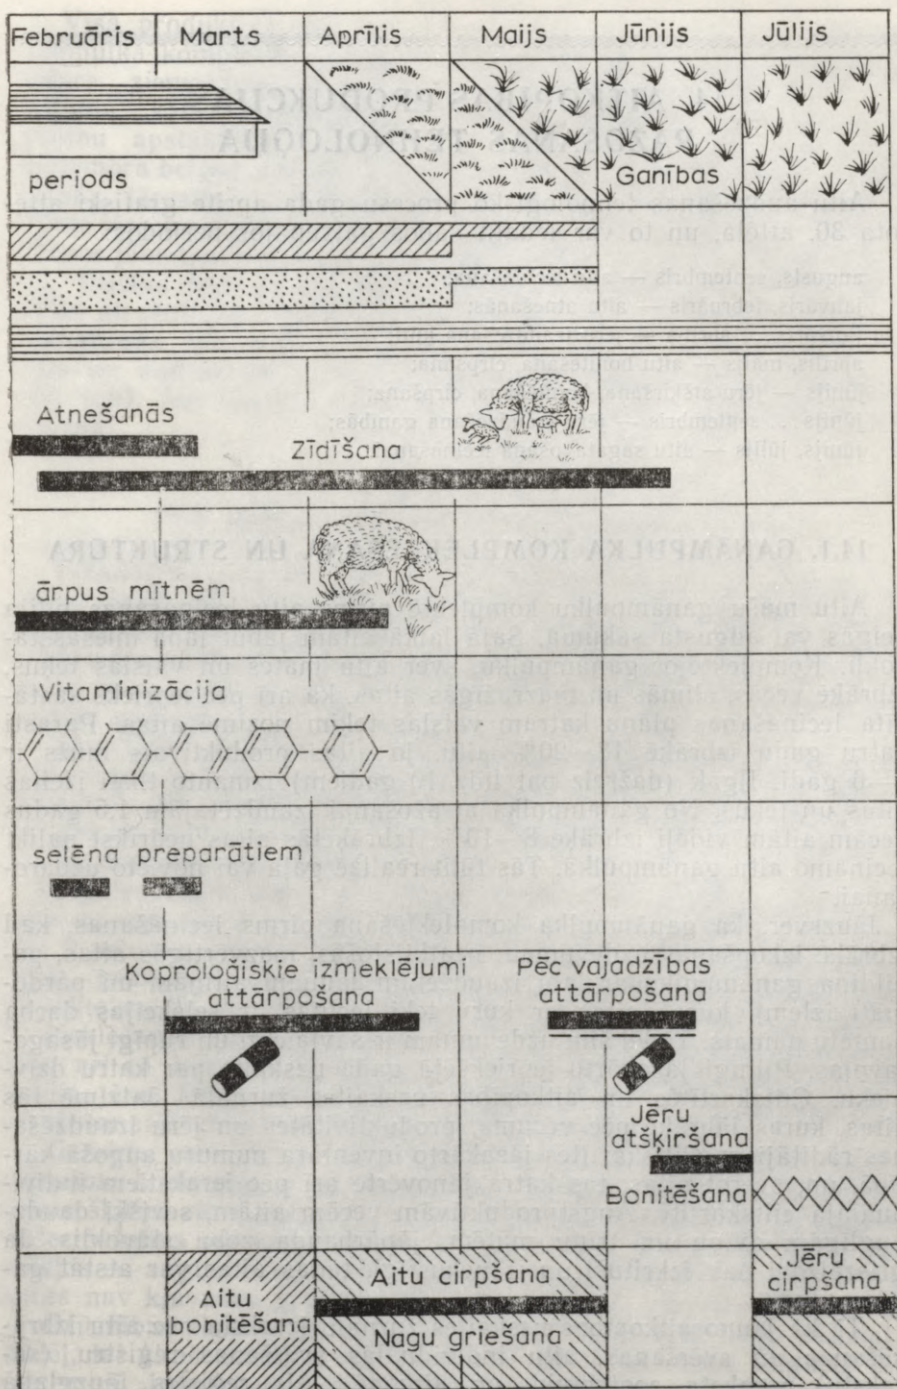 Februāris Marts Aprīlis Maijs Jūnijs Jūlijs
periods
Ganības
Atnešanās
Zīdīšana
ārpus mītnēm
Vitaminizācija
selēna preparātiem
Koproloģiskie izmeklējumi
attārpošana
Pēc vajadzības
attārpošana
Jēru
atšķiršana
Bonitēšana
Aitu
bonitēšana
Aitu cirpšana
Nagu griešana
Jēru
cirpšana